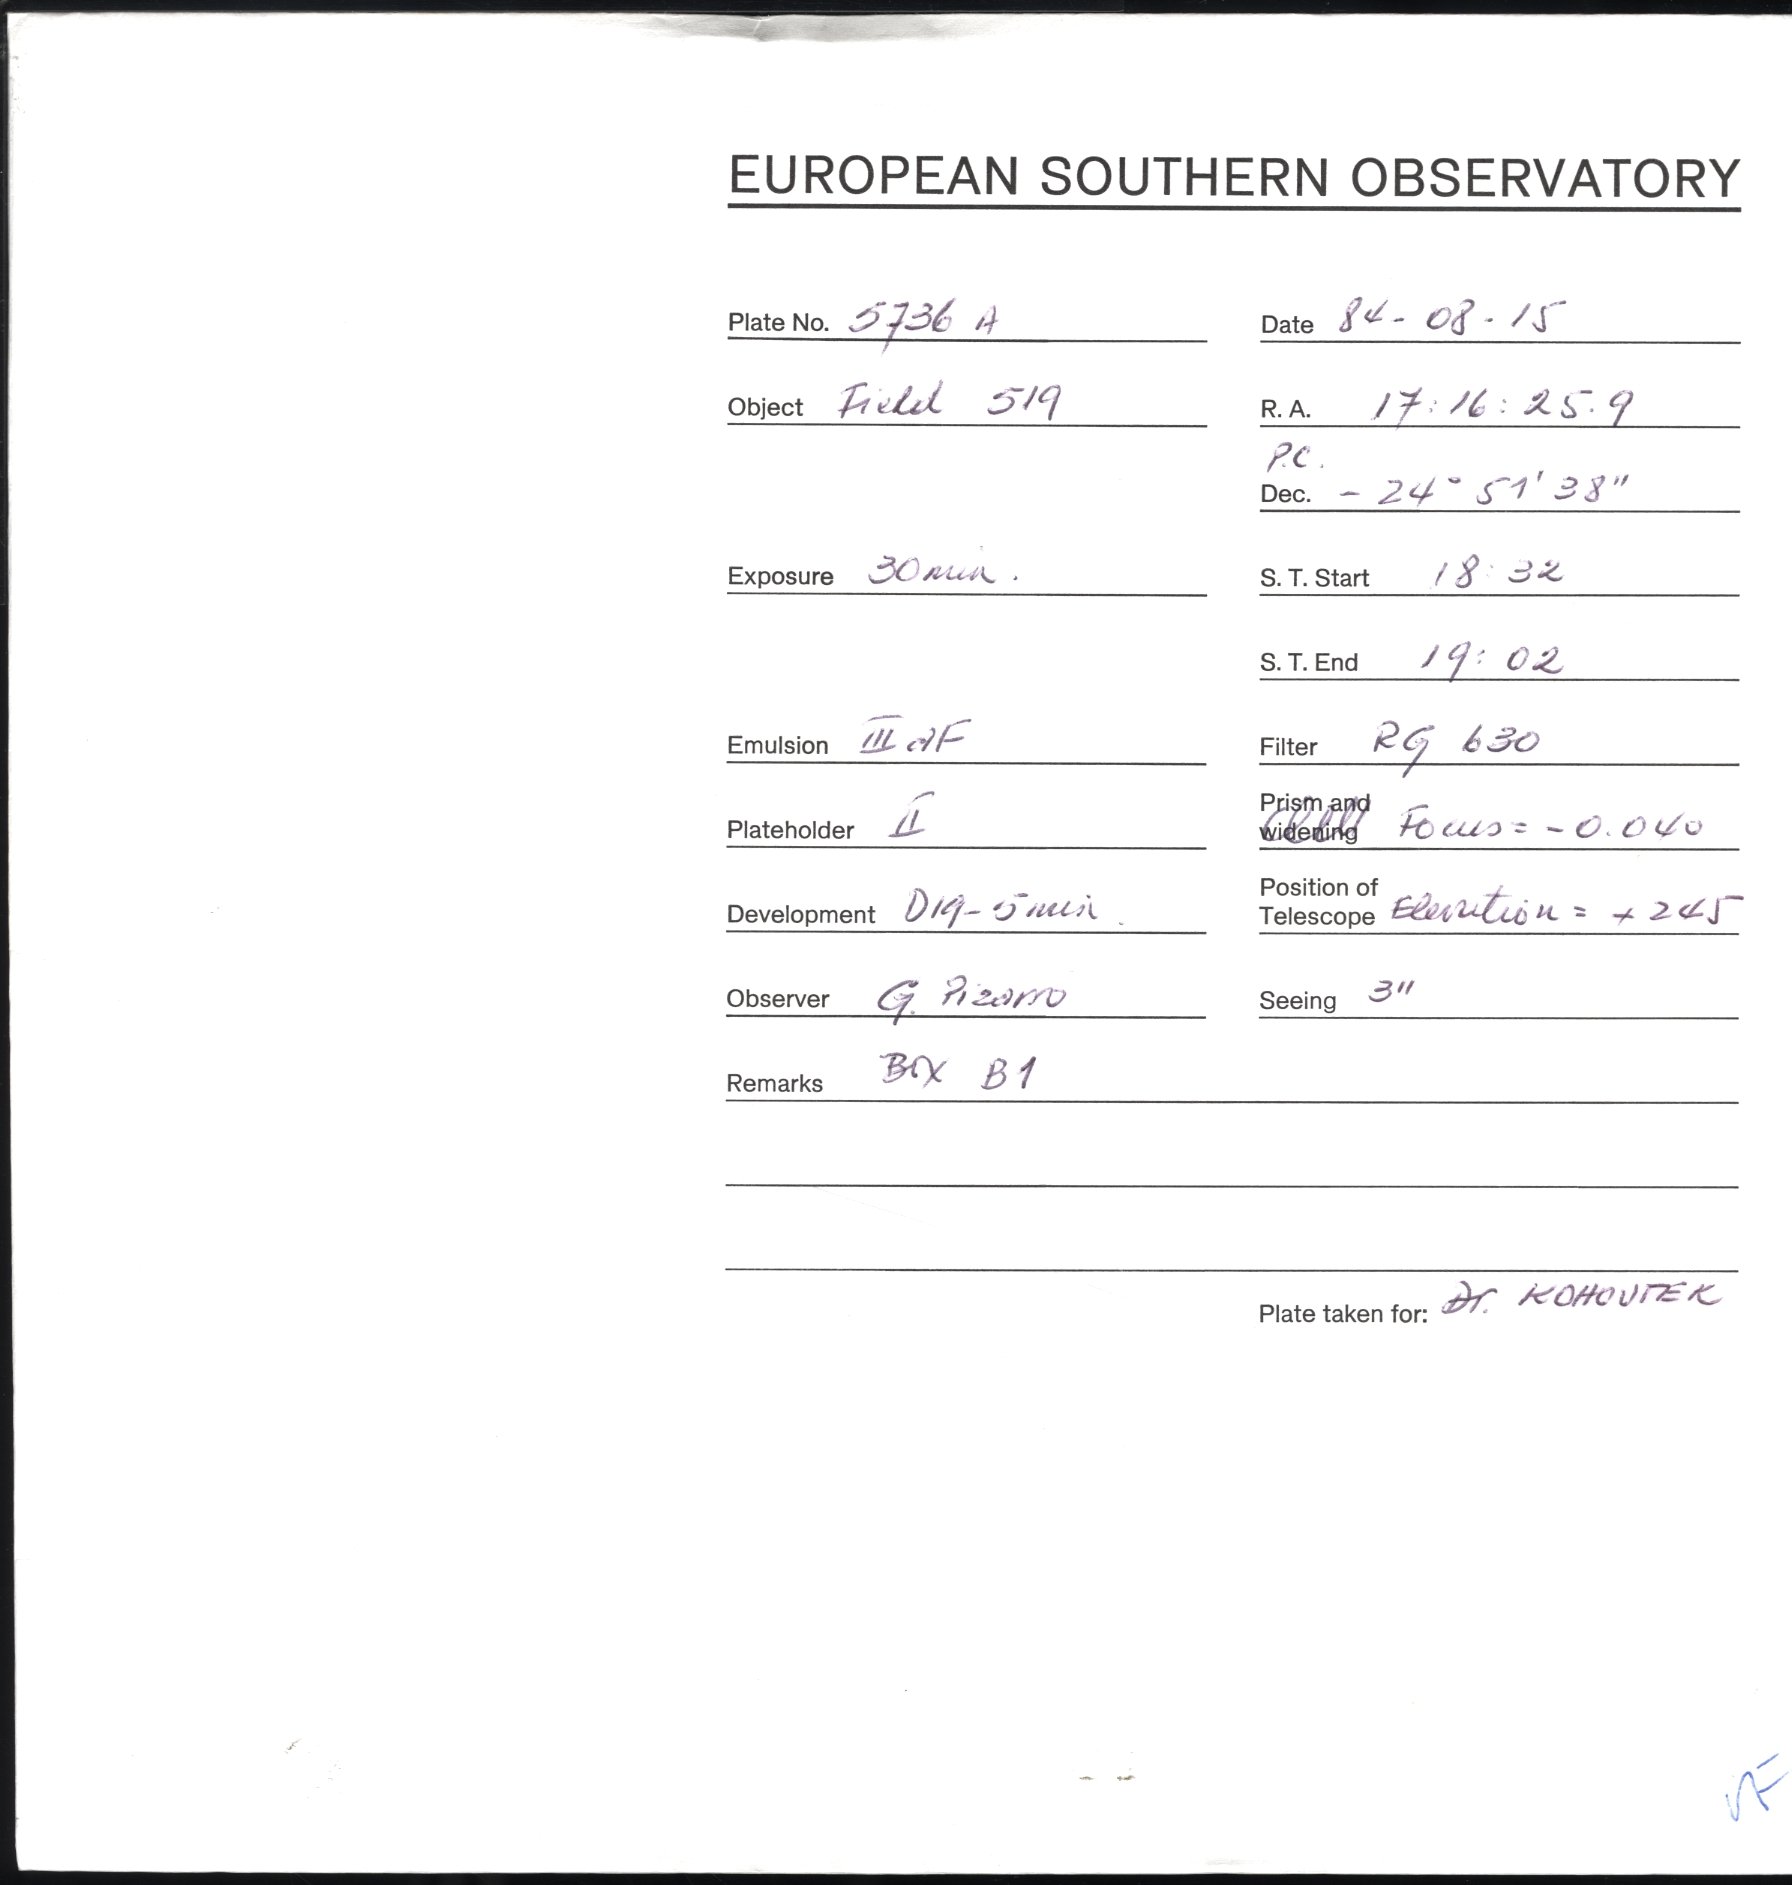 EUROPEAN SOUTHERN OBSERVATORY
Plate No. 5736 A
Date 84-08-15
Object Field 519
R. A. 17:16:25.9
P.C.
Dec. -24° 51' 38"
Exposure 30min.
S. T. Start 18:32
S. T. End 19:02
Emulsion III aF
Filter RG 630
Plateholder II
Prism and
widening Focus = -0.040
Development D19-5min.
Position of
Telescope Elevation = +245
Observer G. Pizarro
Seeing 3"
Remarks Box B1
Plate taken for: Dr. KOHOUTEK